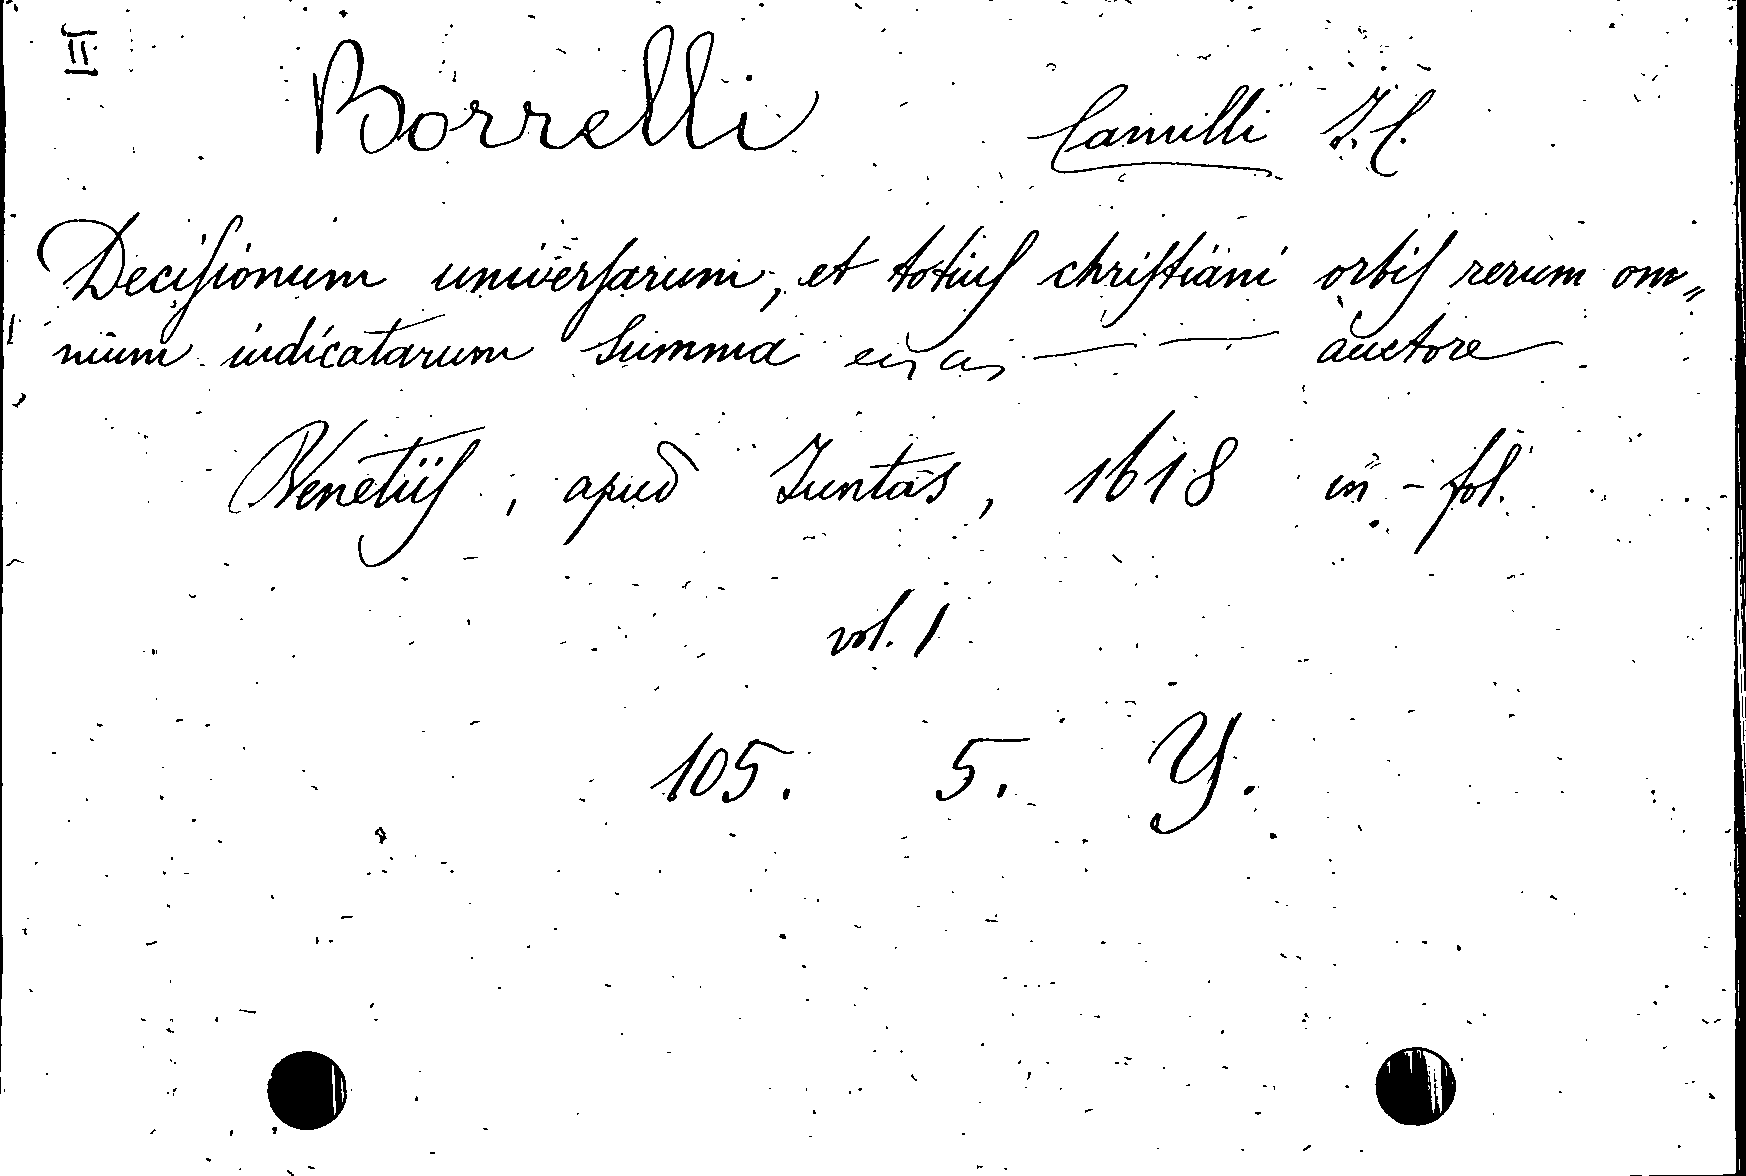 II
Borrelli Camilli J. C.
Decisionum universarum, et totius christiani orbis rerum om„
nium indicatarum Summa — — — auctore
Venetiis, apud Juntas, 1618 in-fol.
vol. 1
105. 5. Y.